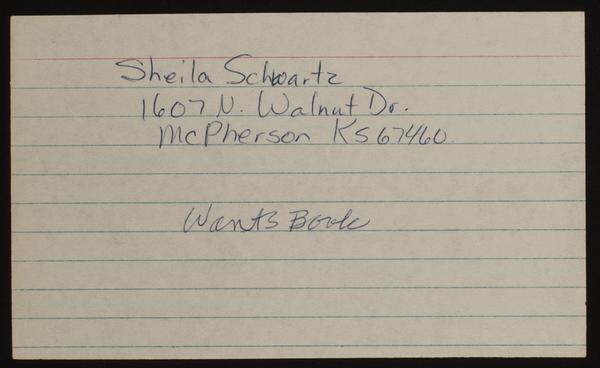 Sheila Schwartz
1607 N. Walnut Dr.
McPherson KS 67460
Wants Book